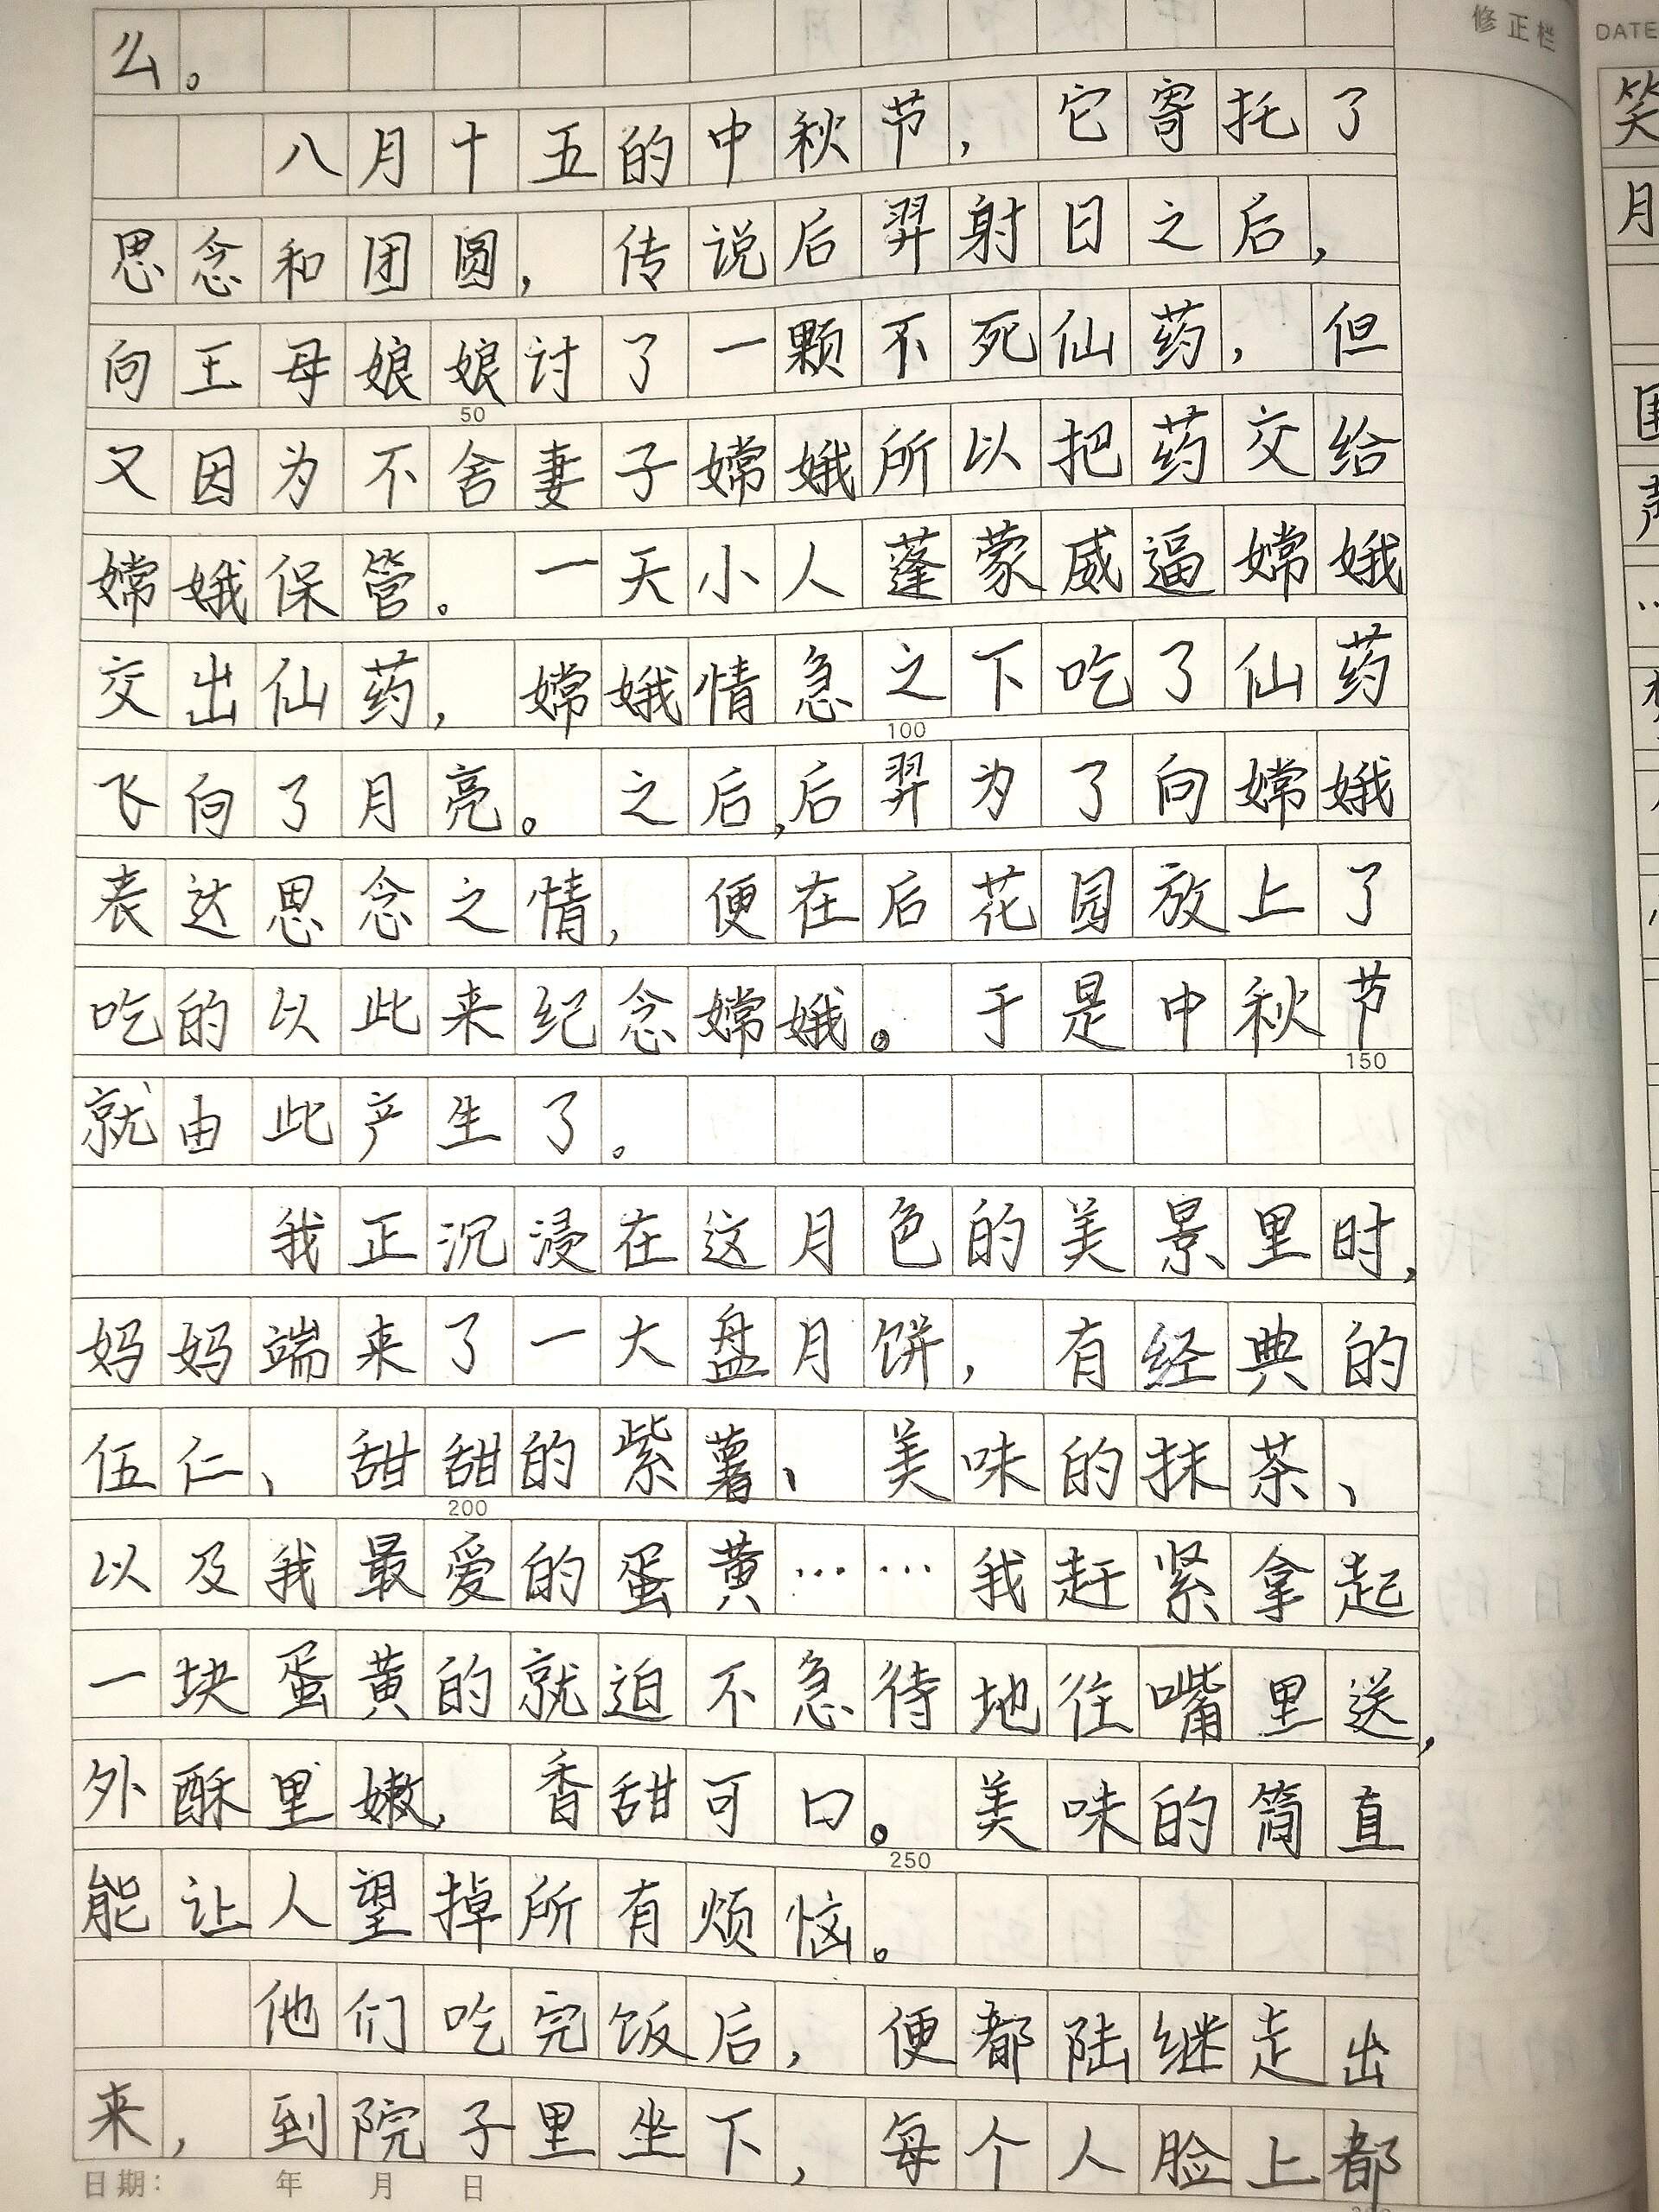 修正栏 DATE
么。
八月十五的中秋节，它寄托了
思念和团圆，传说后羿射日之后，
向王母娘娘讨了一颗不死仙药，但
50
又因为不舍妻子嫦娥所以把药交给
嫦娥保管。一天小人蓬蒙威逼嫦娥
交出仙药，嫦娥情急之下吃了仙药
100
飞向了月亮。之后，后羿为了向嫦娥
表达思念之情，便在后花园放上了
吃的以此来纪念嫦娥。于是中秋节
150
就由此产生了。
我正沉浸在这月色的美景里时，
妈妈端来了一大盘月饼，有经典的
伍仁、甜甜的紫薯、美味的抹茶、
200
以及我最爱的蛋黄……我赶紧拿起
一块蛋黄的就迫不急待地往嘴里送，
外酥里嫩，香甜可口。美味的简直
250
能让人望掉所有烦恼。
他们吃完饭后，便都陆继走出
来，到院子里坐下，每个人脸上都
日期： 年 月 日
笑
月